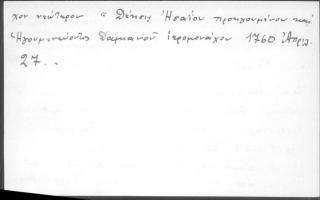 χον νεώτερον " Δέησις Ἡσαΐου προηγουμένου καὶ
Ἡγουμενεύοντος Δαμιανοῦ ἱερομονάχου 1760 Ἀπριλ.
27 . .